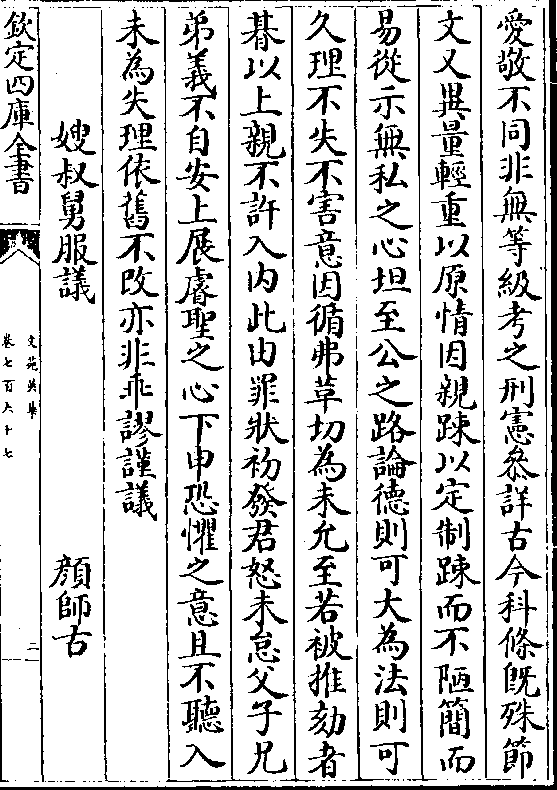 愛敬不同非無等級考之刑憲叅詳古今科條既殊節
文又異量輕重以原情因親踈以定制踈而不陋簡而
易從示無私之心坦至公之路論德則可大為法則可
久理不失不害意因循弗革切為未允至若被推劾者
朞以上親不許入内此由罪狀初發君怒未怠父子兄
弟義不自安上展睿聖之心下申恐懼之意且不聽入
未為失理依舊不改亦非乖謬謹議
嫂叔舅服議 顔師古
欽定四庫全書
文苑英華
卷七百六十七
二